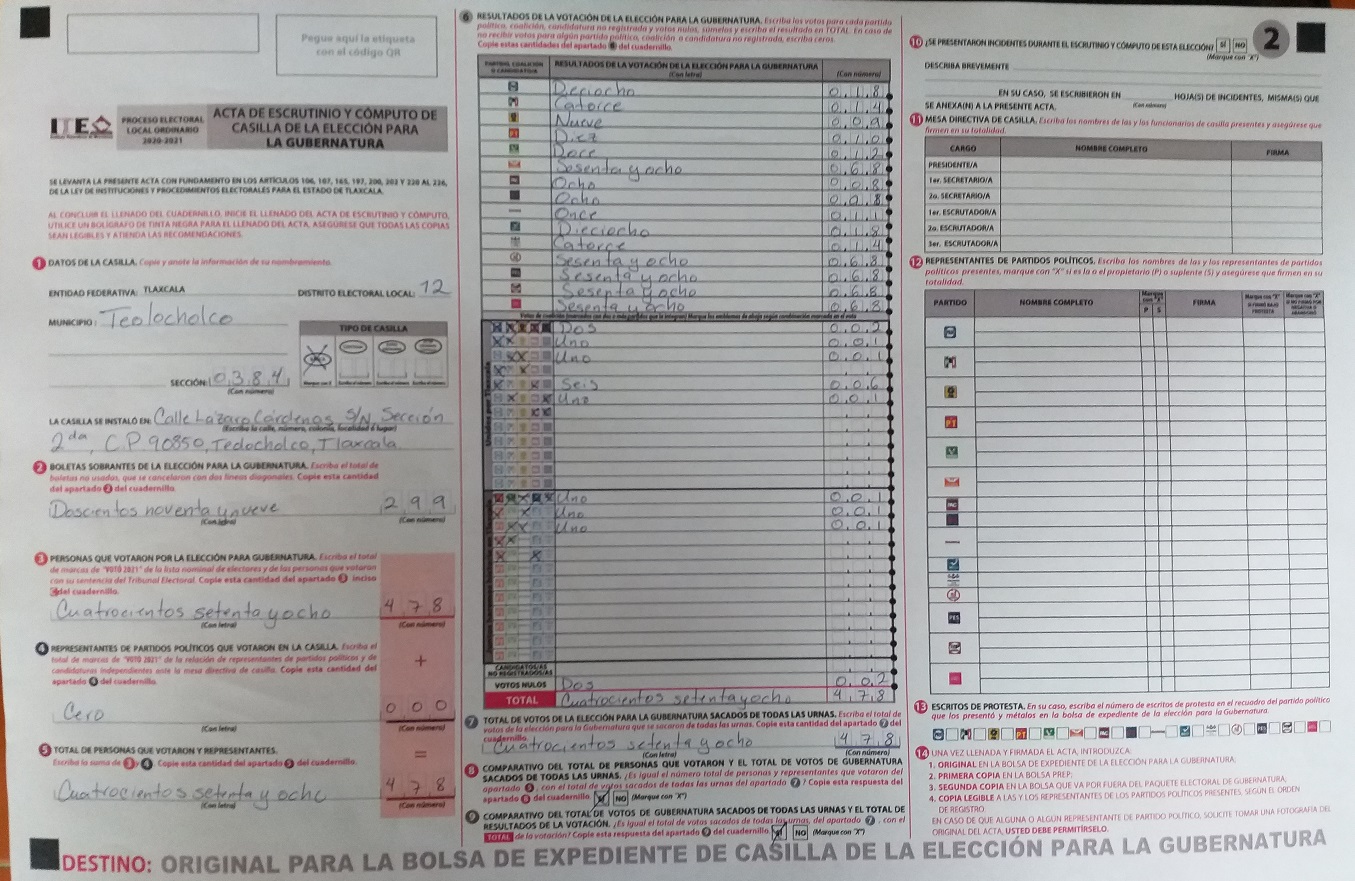 Pegue aquí la etiqueta
con el código QR
ITE
PROCESO ELECTORAL
LOCAL ORDINARIO
2020-2021
ACTA DE ESCRUTINIO Y CÓMPUTO DE
CASILLA DE LA ELECCIÓN PARA
LA GUBERNATURA
SE LEVANTA LA PRESENTE ACTA CON FUNDAMENTO EN LOS ARTÍCULOS
DE LA LEY DE INSTITUCIONES Y PROCEDIMIENTOS ELECTORALES PARA EL ESTADO DE TLAXCALA.
AL CONCLUIR EL LLENADO DEL CUADERNILLO, INICIE EL LLENADO DEL ACTA DE ESCRUTINIO Y CÓMPUTO,
UTILICE UN BOLÍGRAFO DE TINTA NEGRA PARA EL LLENADO DEL ACTA, ASEGÚRESE QUE TODAS LAS COPIAS
SEAN LEGIBLES Y ATIENDA LAS RECOMENDACIONES.
1 DATOS DE LA CASILLA. Copie y anote la información de su nombramiento.
ENTIDAD FEDERATIVA: TLAXCALA DISTRITO ELECTORAL LOCAL: 12
MUNICIPIO: Teolocholco
TIPO DE CASILLA
SECCIÓN: 0 3 8 4
(Con número)
LA CASILLA SE INSTALÓ EN: Calle Lázaro Cárdenas S/N Sección
(Escriba la calle, número, colonia, localidad o lugar)
2da, C.P. 90850, Teolocholco, Tlaxcala
2 BOLETAS SOBRANTES DE LA ELECCIÓN PARA LA GUBERNATURA. Escriba el total de
boletas no usadas, que se cancelaron con dos líneas diagonales. Copie esta cantidad
del apartado 2 del cuadernillo.
Doscientos noventa y nueve 2 9 9
(Con letra) (Con número)
3 PERSONAS QUE VOTARON POR LA ELECCIÓN PARA GUBERNATURA. Escriba el total
de marcas de "VOTÓ 2021" de la lista nominal de electores y de las personas que votaron
con su sentencia del Tribunal Electoral. Copie esta cantidad del apartado 3 inciso
del cuadernillo.
Cuatrocientos setenta y ocho 4 7 8
(Con letra) (Con número)
4 REPRESENTANTES DE PARTIDOS POLÍTICOS QUE VOTARON EN LA CASILLA. Escriba el
total de marcas de "VOTÓ 2021" de la relación de representantes de partidos políticos y de
candidaturas independientes ante la mesa directiva de casilla. Copie esta cantidad del
apartado 4 del cuadernillo.
+
Cero 0 0 0
(Con letra) (Con número)
5 TOTAL DE PERSONAS QUE VOTARON Y REPRESENTANTES.
Escriba la suma de 3 y 4. Copie esta cantidad del apartado 5 del cuadernillo.
=
Cuatrocientos setenta y ocho 4 7 8
(Con letra) (Con número)
6 RESULTADOS DE LA VOTACIÓN DE LA ELECCIÓN PARA LA GUBERNATURA. Escriba los votos para cada partido
político, coalición, candidatura no registrada y votos nulos, súmelos y escriba el resultado en TOTAL. En caso de
no recibir votos para algún partido político, coalición o candidatura no registrada, escriba ceros.
Copie estas cantidades del apartado 6 del cuadernillo.
RESULTADOS DE LA VOTACIÓN DE LA ELECCIÓN PARA LA GUBERNATURA
(Con letra) (Con número)
Dieciocho 0 1 8
Catorce 0 1 4
Nueve 0 0 9
Diez 0 1 0
Doce 0 1 2
Sesenta y ocho 0 6 8
Ocho 0 0 8
Ocho 0 0 8
Once 0 1 1
Dieciocho 0 1 8
Catorce 0 1 4
Sesenta y ocho 0 6 8
Sesenta y ocho 0 6 8
Sesenta y ocho 0 6 8
Sesenta y ocho 0 6 8
Dos 0 0 2
Uno 0 0 1
Uno 0 0 1
Seis 0 0 6
Uno 0 0 1
Uno 0 0 1
Uno 0 0 1
Uno 0 0 1
CANDIDATOS/AS
NO REGISTRADOS/AS
VOTOS NULOS Dos 0 0 2
TOTAL Cuatrocientos setenta y ocho 4 7 8
7 TOTAL DE VOTOS DE LA ELECCIÓN PARA LA GUBERNATURA SACADOS DE TODAS LAS URNAS. Escriba el total de
votos de la elección para la Gubernatura que se sacaron de todas las urnas. Copie esta cantidad del apartado 7 del
cuadernillo.
Cuatrocientos setenta y ocho 4 7 8
(Con letra) (Con número)
8 COMPARATIVO DEL TOTAL DE PERSONAS QUE VOTARON Y EL TOTAL DE VOTOS DE GUBERNATURA
SACADOS DE TODAS LAS URNAS. ¿Es igual el número total de personas y representantes que votaron del
apartado 5, con el total de votos sacados de todas las urnas del apartado 7? Copie esta respuesta del
apartado 8 del cuadernillo. NO (Marque con "X")
9 COMPARATIVO DEL TOTAL DE VOTOS DE GUBERNATURA SACADOS DE TODAS LAS URNAS Y EL TOTAL DE
RESULTADOS DE LA VOTACIÓN. ¿Es igual el total de votos sacados de todas las urnas, del apartado 7, con el
TOTAL de la votación? Copie esta respuesta del apartado 9 del cuadernillo. NO (Marque con "X")
10 ¿SE PRESENTARON INCIDENTES DURANTE EL ESCRUTINIO Y CÓMPUTO DE ESTA ELECCIÓN? SÍ NO
(Marque con "X")
2
DESCRIBA BREVEMENTE
EN SU CASO, SE ESCRIBIERON EN HOJA(S) DE INCIDENTES, MISMA(S) QUE
SE ANEXA(N) A LA PRESENTE ACTA. (Con número)
11 MESA DIRECTIVA DE CASILLA. Escriba los nombres de las y los funcionarios de casilla presentes y asegúrese que
firmen en su totalidad.
CARGO NOMBRE COMPLETO FIRMA
PRESIDENTE/A
1er. SECRETARIO/A
2o. SECRETARIO/A
1er. ESCRUTADOR/A
2o. ESCRUTADOR/A
3er. ESCRUTADOR/A
12 REPRESENTANTES DE PARTIDOS POLÍTICOS. Escriba los nombres de las y los representantes de partidos
políticos presentes, marque con "X" si es la o el propietario (P) o suplente (S) y asegúrese que firmen en su
totalidad.
PARTIDO NOMBRE COMPLETO Marque con "X" P S FIRMA
PT
PAC
PES
13 ESCRITOS DE PROTESTA. En su caso, escriba el número de escritos de protesta en el recuadro del partido político
que los presentó y métalos en la bolsa de expediente de la elección para la Gubernatura.
14 UNA VEZ LLENADA Y FIRMADA EL ACTA, INTRODUZCA:
1. ORIGINAL EN LA BOLSA DE EXPEDIENTE DE LA ELECCIÓN PARA LA GUBERNATURA.
2. PRIMERA COPIA EN LA BOLSA PREP;
3. SEGUNDA COPIA EN LA BOLSA QUE VA POR FUERA DEL PAQUETE ELECTORAL DE GUBERNATURA;
4. COPIA LEGIBLE A LAS Y LOS REPRESENTANTES DE LOS PARTIDOS POLÍTICOS PRESENTES, SEGÚN EL ORDEN
DE REGISTRO.
EN CASO DE QUE ALGUNA O ALGÚN REPRESENTANTE DE PARTIDO POLÍTICO, SOLICITE TOMAR UNA FOTOGRAFÍA DEL
ORIGINAL DEL ACTA, USTED DEBE PERMITÍRSELO.
DESTINO: ORIGINAL PARA LA BOLSA DE EXPEDIENTE DE CASILLA DE LA ELECCIÓN PARA LA GUBERNATURA